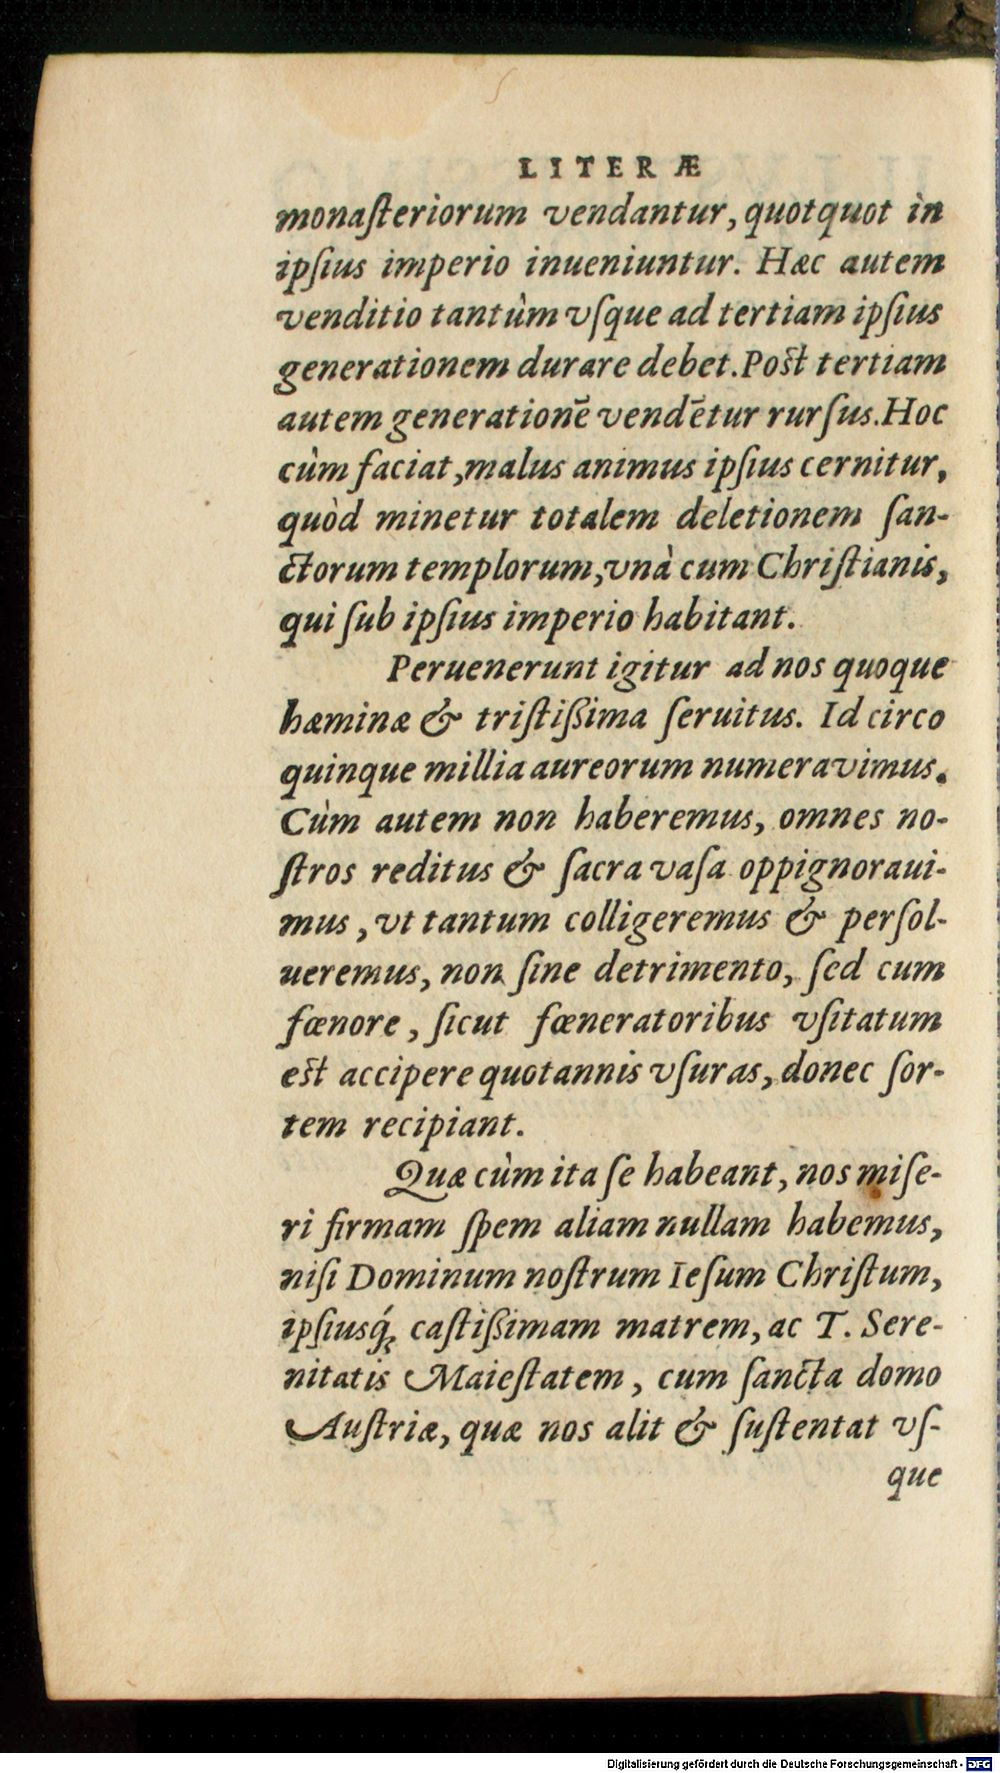 LITERÆ
monaſteriorum vendantur, quotquot in
ipſius imperio inueniuntur. Hæc autem
venditio tantùm vſque ad tertiam ipſius
generationem durare debet. Poſt tertiam
autem generationē vendētur rurſus. Hoc
cùm faciat, malus animus ipſius cernitur,
quòd minetur totalem deletionem ſan-
ctorum templorum, vnà cum Chriſtianis,
qui ſub ipſius imperio habitant.
Peruenerunt igitur ad nos quoque
hæminæ & triſtißima ſeruitus. Id circo
quinque millia aureorum numeravimus.
Cùm autem non haberemus, omnes no-
ſtros reditus & ſacra vaſa oppignoraui-
mus, vt tantum colligeremus & perſol-
ueremus, non ſine detrimento, ſed cum
fœnore, ſicut fœneratoribus vſitatum
eſt accipere quotannis vſuras, donec ſor-
tem recipiant.
Quæ cùm ita ſe habeant, nos miſe-
ri firmam ſpem aliam nullam habemus,
niſi Dominum noſtrum Ieſum Chriſtum,
ipſiusq́ꝫ caſtißimam matrem, ac T. Sere-
nitatis Maieſtatem, cum ſancta domo
Auſtriæ, quæ nos alit & ſuſtentat vſ-
que
Digitalisierung gefördert durch die Deutsche Forschungsgemeinschaft - DFG